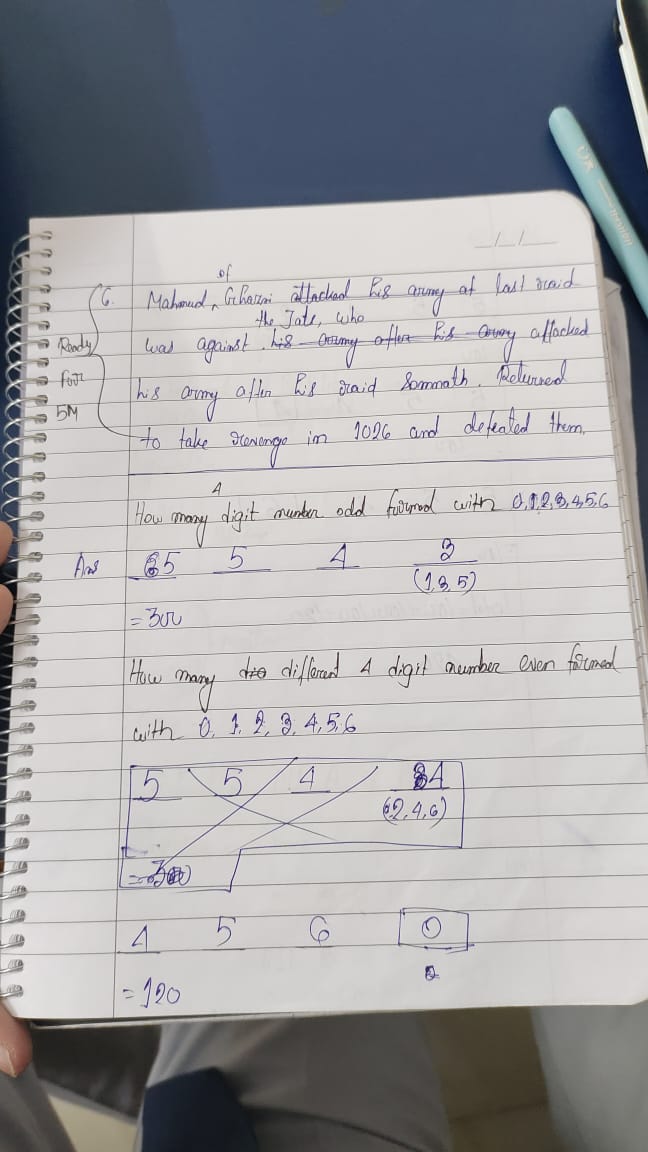 _/_/_
of
6. Mahmud ^ Ghazni attacked his army at last raid
the Jats, who
was against his army after his army attacked
Ready his army after his raid Somnath. Returned
for
5M to take revenge in 1026 and defeated them.
4
How many digit number odd formed with 0,1,2,3,4,5,6
Ans 65 5 4 3
(1,3,5)
= 300
How many different 4 digit number even formed
with 0, 1, 2, 3, 4, 5, 6
5 5 4 34
(2,4,6)
= 300
4 5 6 0
= 120